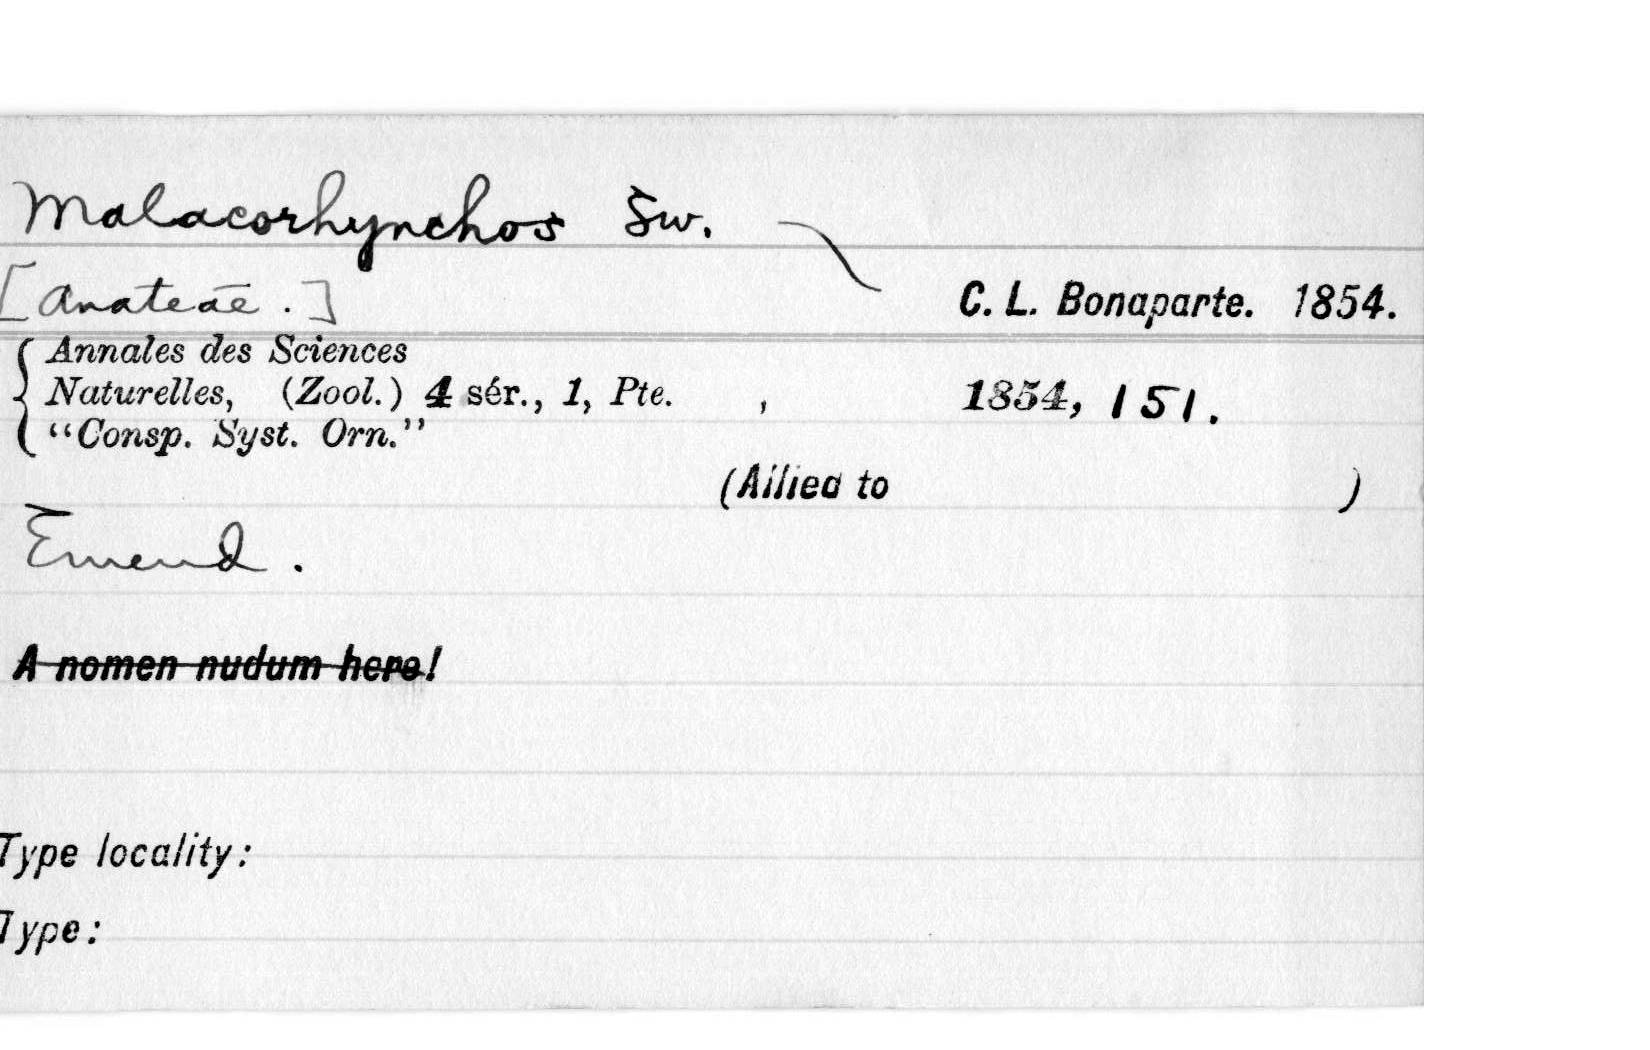 Malacorhynchos Sw.
[Anateae.] C. L. Bonaparte. 1854.
Annales des Sciences
Naturelles, (Zool.) 4 sér., 1, Pte. , 1854, 151.
"Consp. Syst. Orn."
(Allied to )
Emend.
A nomen nudum here!
Type locality:
Type: